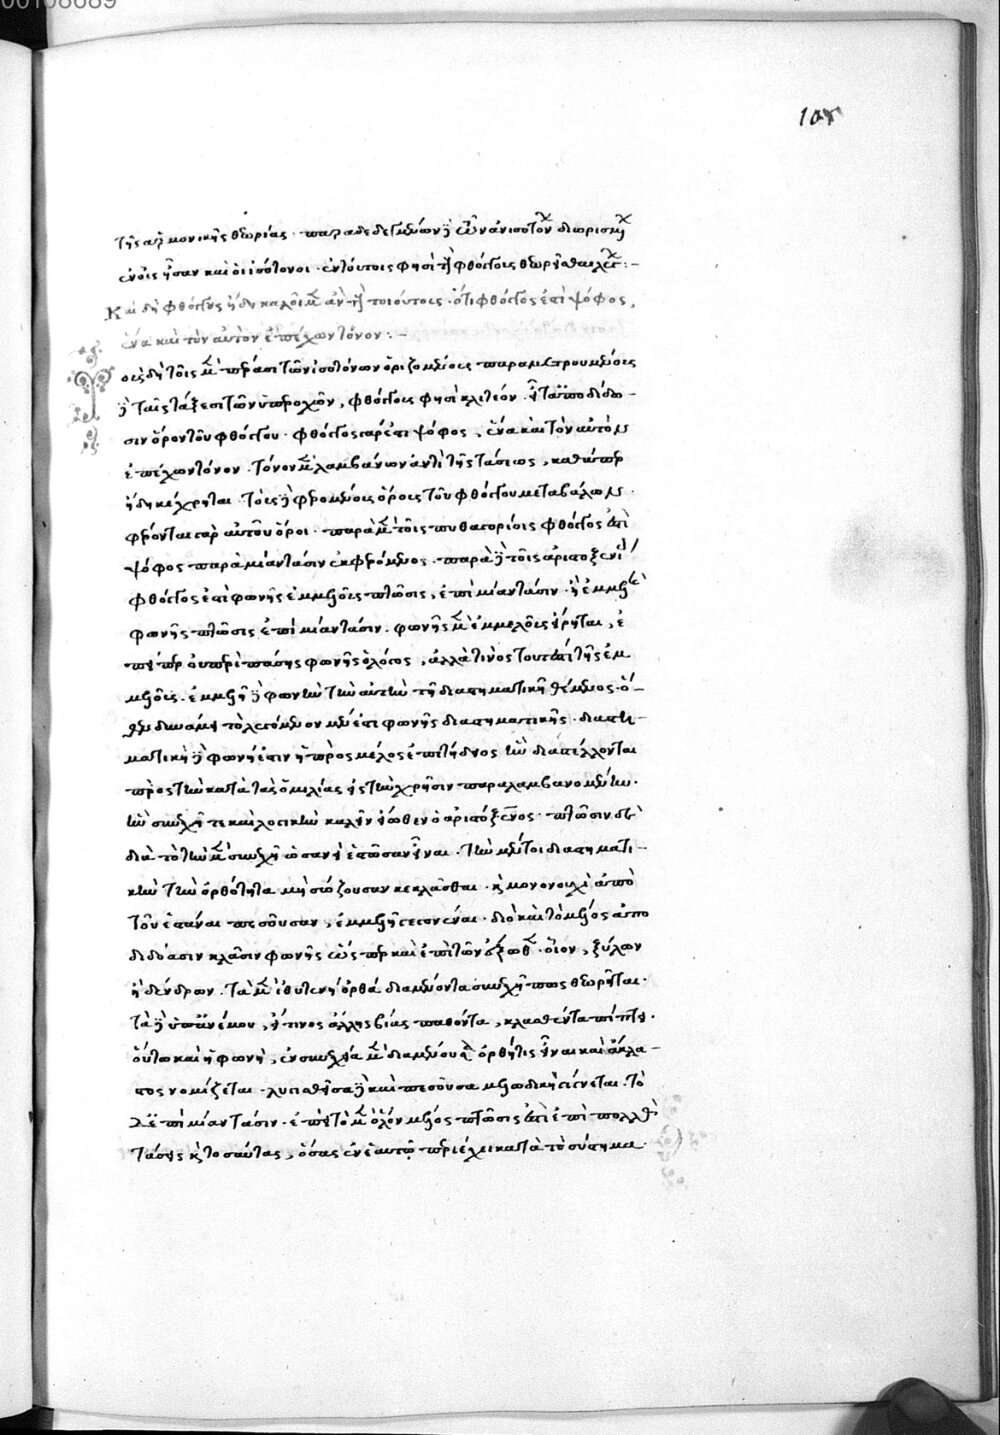 00108689
108
τῆς ἁρμονικῆς θεωρίας. παραδεδεγμένων δὲ τῶν ἀνισοτόνων διωρισμένων
ἐν οἷς ἦσαν καὶ οἱ ἰσότονοι. ἐν τούτοις φησὶ τοῖς φθόγγοις θεωρεῖσθαι :-
Καὶ δὴ φθόγγους ἤδη καλοῖμεν ἂν τοὺς τοιούτους. ὅτι φθόγγος ἐστὶ ψόφος,
ἕνα καὶ τὸν αὐτὸν ἐπέχων τόνον :-
τοῖς μὲν πέρασι τῶν ἰσοτόνων ὁριζομένοις παραμετρουμένοις
δὲ ταῖς τάξεσι τῶν ὑπεροχῶν, φθόγγοις φησὶ κλητέον. εἶτα ὑποδίδω-
σιν ὅρον τοῦ φθόγγου. φθόγγος γάρ ἐστι ψόφος, ἕνα καὶ τὸν αὐτὸν
ἐπέχων τόνον. τόνον μὲν λαμβάνων ἀντὶ τῆς τάσεως, καθάπερ
ἤδη κέχρηται. τοῖς δὲ φερομένοις ὅροις τοῦ φθόγγου μεταβαλών.
φέρονται γὰρ αὐτοῦ ὅροι. παρὰ μὲν τοῖς πυθαγορείοις φθόγγος ἐστὶ
ψόφος παρὰ μίαν τάσιν ἐκφερόμενος. παρὰ δὲ τοῖς ἀριστοξενείοις
φθόγγος ἐστὶ φωνῆς ἐμμελοῦς πτῶσις, ἐπὶ μίαν τάσιν. ἢ ἐμμελὴς
φωνῆς πτῶσις ἐπὶ μίαν τάσιν. φωνῆς μὲν ἐμμελοῦς εἴρηται, ἐ
πείπερ οὐ περὶ πάσης φωνῆς ὁ λόγος, ἀλλὰ τινὸς τουτέστι τῆς ἐμ
μελοῦς. ἐμμελῆ δὲ φωνὴν τὴν αὐτὴν τῇ διαστηματικῇ θέμενος. ὅ-
θεν δυνάμει τὸ λεγόμενον μέν ἐστι φωνῆς διαστηματικῆς. διαστη-
ματικὴ δὲ φωνή ἐστιν ἡ πρὸς μέλος ἐπιτήδειος ἣν διαστέλλονται
πρὸς τὴν κατὰ τὰς ὁμιλίας εἰς τὴν χρῆσιν παραλαμβανομένην.
ἣν συνεχῆ τε καὶ λογικὴν καλεῖν εἴωθεν ὁ ἀριστόξενος. πτῶσιν δὲ
διὰ τὸ τὴν μὲν συνεχῆ ὡσανεὶ ἑστῶσαν εἶναι. τὴν μέντοι διαστηματι-
κὴν τὴν ὀρθότητα μὴ σώζουσαν κεκλάσθαι. καὶ μονονουχὶ ἀπὸ
τοῦ ἑστάναι πεσοῦσαν, ἐμμελῆ γεγονέναι. διὸ καὶ τὸ μέλος ἀπο
διδόασιν κλάσιν φωνῆς ὥσπερ καὶ ἐπὶ τῶν ἔξωθεν. οἷον, ξύλων
ἢ δένδρων. τὰ μὲν εὐθυτενῆ ὀρθὰ διαμένοντα συνεχῆ πως θεωρεῖται.
τὰ δὲ ὑπ' ἀνέμου, ἤ τινος ἄλλης βίας παθόντα, κλασθέντα πίπτει.
οὕτω καὶ ἡ φωνὴ, ἐν συνεχείᾳ μὲν διαμένουσα ὀρθή τις εἶναι καὶ ἄκλα-
στος νομίζεται. λυγισθεῖσα δὲ καὶ πεσοῦσα μελωδικὴ γίνεται. τὸ
δὲ ἐπὶ μίαν τάσιν. ἐπεὶ τὸ μὲν ὅλον μέλος πτῶσις ἐστὶ ἐπὶ πολλὰς
τάσεις καὶ τοσαύτας, ὅσας ἐν ἑαυτῷ περιέχει κατὰ τὸ σύστημα.